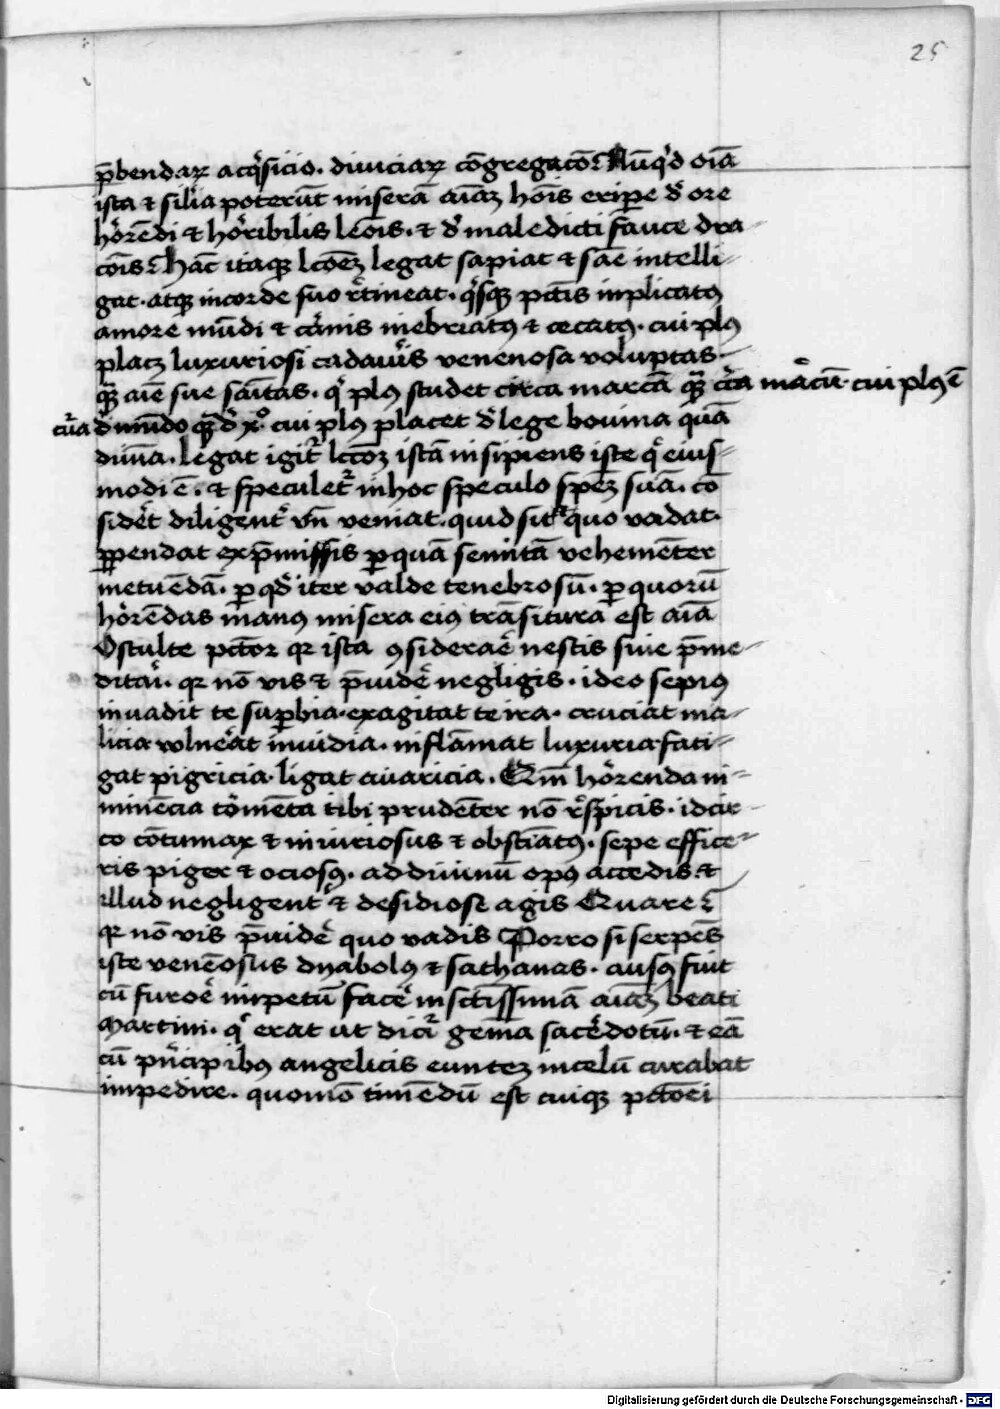 25
p̄bendaꝝ acq̇sicio. diuiciaꝝ cōgregacō? Nūq'd oīa
ista & silia poterūt miserā aīaʒ hoīs eripe d' ore
horrēdi & horribilis leōis. & d' maledicti fauce dra-
cōis? Hāc itaqʒ lcōeʒ legat sapiat & sane intelli-
gat. atqʒ in corde suo retineat. q'sqʒ pctīs inplicatꝯ
amore mūdi & carnis inebriatꝯ & cecatꝯ. cui plꝯ
placʒ luxuriosi cadauis venenosa voluptas.
qʒ aīe sue sāītas. q' plꝯ studet circa marcā qʒ circa mārcū. cui plꝯ ē
cura d' mūdo qʒ d' xº. cui plꝯ placet d' lege bouina quā
diuīa. legat igit' lcōeʒ istā insipiens iste q' eius-
modi ē. & speculet' in hoc speculo speʒ suā. cō
sideret diligent' vn̄ veniat. quid sit & quo vadat.
ꝑpendat ex p̄missis ꝑ quā semitā vehemēter
metuēdā. ꝑ qd' iter valde tenebrosū. ꝑ quorū
horrēdas manꝯ misera eiꝯ trāsitura est aīa
O stulte pctor qr ista ꝯsiderare nescis siue p̄me-
ditari. qr nō vis & p̄uidere negligis. ideo sepiꝯ
inuadit te suꝑbia. exagitat te ira. cruciat ma-
licia vulnerat inuidia. inflāmat luxuria. fati-
gat pigricia. ligat auaricia. Qm̄ horrenda in-
minēcia tormēta tibi prudēter nō respicis. idcir-
co cōtumax & iniuriosus & obstiātꝯ. sepe effice-
ris piger & ociosꝯ. ad diuinū opꝯ accedis &
illud negligent' & desidiose agis Quare?
qr nō vis p̄uidere quo vadis Porro si serpēs
iste venēosus dyabolꝯ & sathanas. ausꝯ fuit
cū furore inpetū facere in sctissimā aīaʒ beati
Martini. q' erat ut dicit' gemā sacerdotū. & eā
cū p'ncipibꝯ angelicis euntem in celū curabat
impedire. quomō timēdū est cuiqʒ pctōri
Digitalisierung gefördert durch die Deutsche Forschungsgemeinschaft - DFG